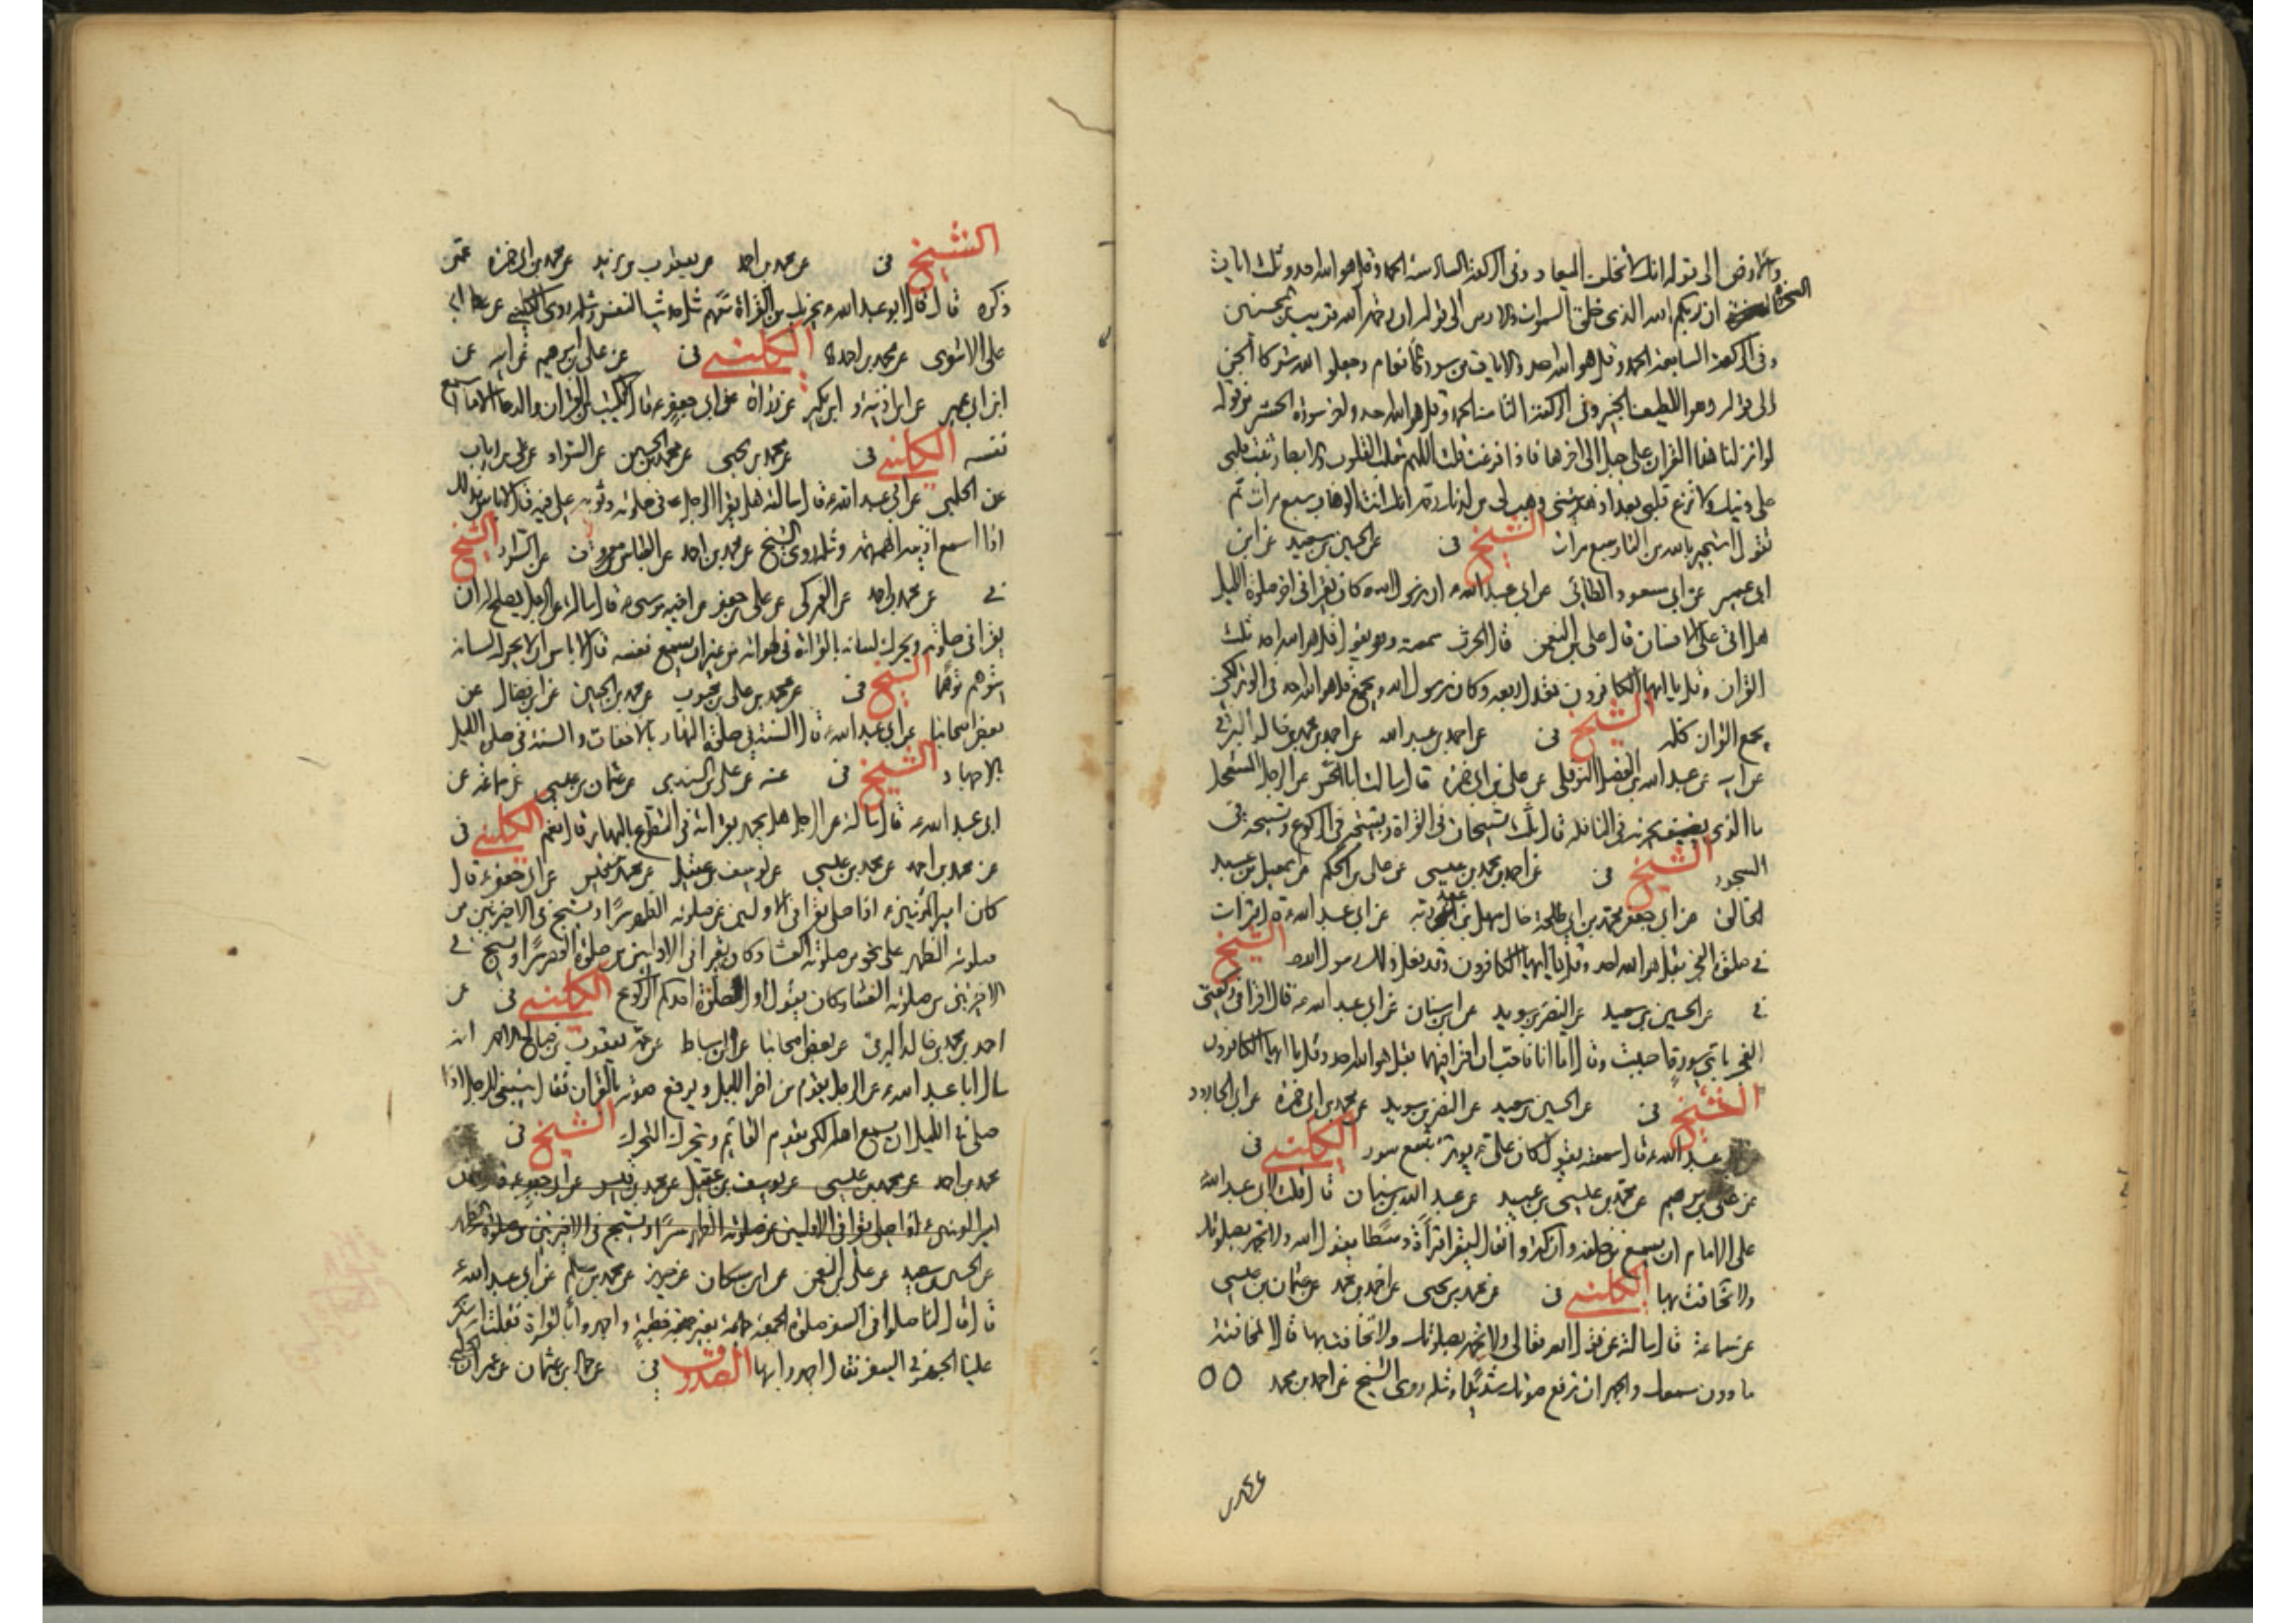 والارض الى قوله انك لا تخلف الميعاد وفى الركعة السادسة الحمد وقل هو الله احد وثلث ايات
السخرة ان ربكم الله الذى خلق السموات والارض الى قوله ان رحمة الله قريب من المحسنين
وفى الركعة السابعة الحمد وقل هو الله احد والايات من سورة الانعام وجعلوا لله شركاء الجن
الى قوله وهو اللطيف الخبير وفى الركعة الثامنة الحمد وقل هو الله احد واخر سورة الحشر من قوله
لو انزلنا هذا القران على جبل الى اخرها فاذا فرغت قلت اللهم مقلب القلوب والابصار ثبت قلبى
على دينك ولا تزغ قلبى بعد اذ هديتنى وهب لى من لدنك رحمة انك انت الوهاب سبع مرات ثم
تقول استجير بالله من النار سبع مرات الشيخ فى عن الحسين بن سعيد عن ابن
ابى عمير عن ابى مسعود الطائى عن ابى عبد الله ع ان رسول الله كان يقرا فى اخر صلوة الليل
هل اتى على الانسان قال على بن النعمن قال الحرث سمعته وهو يقول قل هو الله احد ثلث
القران وقل يا ايها الكافرون تعدل ربعه وكان رسول الله يجمع قل هو الله احد فى الوتر لكى
يجمع القران كله الشيخ فى عن احمد بن عبد الله عن احمد بن محمد بن خالد البرقى
عن ابيه عن عبد الله بن الفضل النوفلى عن على بن ابى حمزة قال سالت ابا الحسن عن الرجل المستعجل
ما الذى يجزيه فى النافلة قال ثلث تسبيحات فى القراة وتسبيحة فى الركوع وتسبيحة فى
السجود الشيخ فى عن احمد بن محمد بن عيسى عن على بن الحكم عن اسمعيل بن عبد
الخالق عن ابى جعفر محمد بن ابى طلحة خال سهل بن عبد ربه عن ابى عبد الله ع قال قرات
فى صلوة الفجر بقل هو الله احد وقل يا ايها الكافرون وقد فعل ذلك رسول الله الشيخ
فى عن الحسين بن سعيد عن النضر بن سويد عن ابن سنان عن ابى عبد الله ع قال اقرا فى ركعتى
الفجر باى سورة احببت وقال اما انا فاحب ان اقرا فيهما بقل هو الله احد وقل يا ايها الكافرون
الشيخ فى عن الحسين بن سعيد عن النضر بن سويد عن محمد بن ابى حمزة عن ابى الجارود
عبد الله ع قال سمعته يقول كان على ع يوتر بتسع سور الكلينى فى
عن على بن ابرهيم عن محمد بن عيسى بن عبيد عن عبد الله بن سنان قال قلت لابى عبد الله ع
على الامام ان يسمع من خلفه وان كثروا فقال ليقرا قراءة وسطا يقول الله ولا تجهر بصلوتك
ولا تخافت بها الكلينى فى عن محمد بن يحيى عن احمد بن محمد عن عثمان بن عيسى
عن سماعة قال سالته عن قول الله تعالى ولا تجهر بصلوتك ولا تخافت بها قال المخافتة
ما دون سمعك والجهر ان ترفع صوتك شديدا ومثله روى الشيخ عن احمد بن محمد
الشيخ فى عن محمد بن احمد عن يعقوب بن يزيد عن محمد بن ابى حمزة عمن
ذكره قال قال ابو عبد الله ع يجزيك من القراة معهم مثل حديث النفس ومثله روى الكلينى عن
على الاشعرى عن محمد بن احمد الكلينى فى عن على بن ابرهيم عن ابيه عن
ابن ابى عمير عن ابن اذينة وابن بكير عن زرارة عن ابى جعفر ع قال لا يكتب من القران والدعاء الا ما اسمع
نفسه الكلينى فى عن محمد بن يحيى عن محمد بن الحسين عن السراد عن على بن رئاب
عن الحلبى عن ابى عبد الله ع قال سالته هل يقرا الرجل فى صلوته وثوبه على فيه قال لا باس بذلك
اذا اسمع اذنيه الهمهمة ومثله روى الشيخ عن محمد بن احمد عن العباس بن معروف عن السراد الشيخ
فى عن محمد بن احمد عن العمركى عن على بن جعفر عن اخيه موسى ع قال سالته عن الرجل يصلح له ان
يقرا فى صلوته ويحرك لسانه بالقراءة فى لهواته من غير ان يسمع نفسه قال لا باس ان لا يحرك لسانه
يتوهم توهما الشيخ فى عن محمد بن على بن محبوب عن محمد بن الحسين عن ابن فضال عن
بعض اصحابنا عن ابى عبد الله ع قال السنة فى صلوة النهار بالاخفات والسنة فى صلوة الليل
بالاجهار الشيخ فى عنه عن على بن السندى عن عثمان بن عيسى عن سماعة عن
ابى عبد الله ع قال سالته عن الرجل هل يجهر بقراءته فى التطوع بالنهار قال نعم الكلينى فى
عن محمد بن احمد عن محمد بن عيسى عن يوسف بن عقيل عن محمد بن قيس عن ابى جعفر ع قال
كان امير المؤمنين ع اذا صلى يقرا فى الاولتين من صلوته الظهر سرا ويسبح فى الاخيرتين من
صلوته الظهر على نحو من صلوته العشاء وكان يقرا فى الاولتين من صلوة العصر سرا ويسبح فى
الاخيرتين من صلوته العشاء وكان يقول اول صلوة احدكم الركوع الكلينى فى عن
احمد بن محمد بن خالد البرقى عن بعض اصحابنا عن ابن اسباط عن عمه يعقوب بن سالم الاحمر انه
سال ابا عبد الله ع عن الرجل يقوم من اخر الليل ويرفع صوته بالقران فقال ينبغى للرجل اذا
صلى فى الليل ان يسمع اهله لكى يقوم القائم ويتحرك المتحرك الشيخ فى
محمد بن احمد عن محمد بن عيسى عن يوسف بن عقيل عن محمد بن قيس عن ابى جعفر ع قال كان
امير المؤمنين ع اذا صلى يقرا فى الاولتين من صلوته الظهر سرا ويسبح فى الاخيرتين من صلوة الظهر
عن الحسين بن سعيد عن على بن النعمن عن ابن مسكان عن حريز عن محمد بن مسلم عن ابى عبد الله ع
قال قال لنا صلوا فى السفر صلوة الجمعة جماعة بغير خطبة واجهروا بالقراءة فقلت انه ينكر
علينا الجهر فى السفر فقال اجهروا بها الصدوق فى عن حماد بن عثمان عن عمران الحلبى